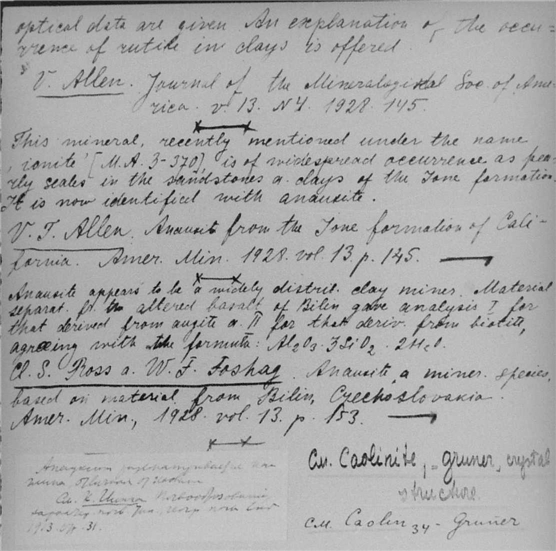 optical data are given. An explanation of the occu-
rrence of rutile in clays is offered.
V. Allen. Journal of the Mineralogical Soc. of Ame
rica. v 13. N4. 1928. 145.
This mineral, recently mentioned under the name
"ionite" [M.A. 3-370] is of widespread occurrence as pea-
rly scales in the sandstones a. clays of the Ione formation.
It is now identified with anauxite.
V. T. Allen. Anauxit from the Ione formation of Cali-
fornia. Amer. Min. 1928. vol. 13. p. 145.
Anauxite appears to be a widely distrib. clay miner. Material
separat. fr. the altered basalt of Bilin gave analysis I for
that derived from augite a. II for that deriv. from biotite,
agreeing with the formula: Al2O3. 3SiO2. 2H2O.
C. S. Ross a. W. F. Foshag. Anauxite, a miner. species,
based on material from Bilin, Czechoslovakia.
Amer. Min, 1928. vol. 13. p. 153.
См. Caolinite, Gruner, crystal
structure.
См. Caolin 34 - Gruner